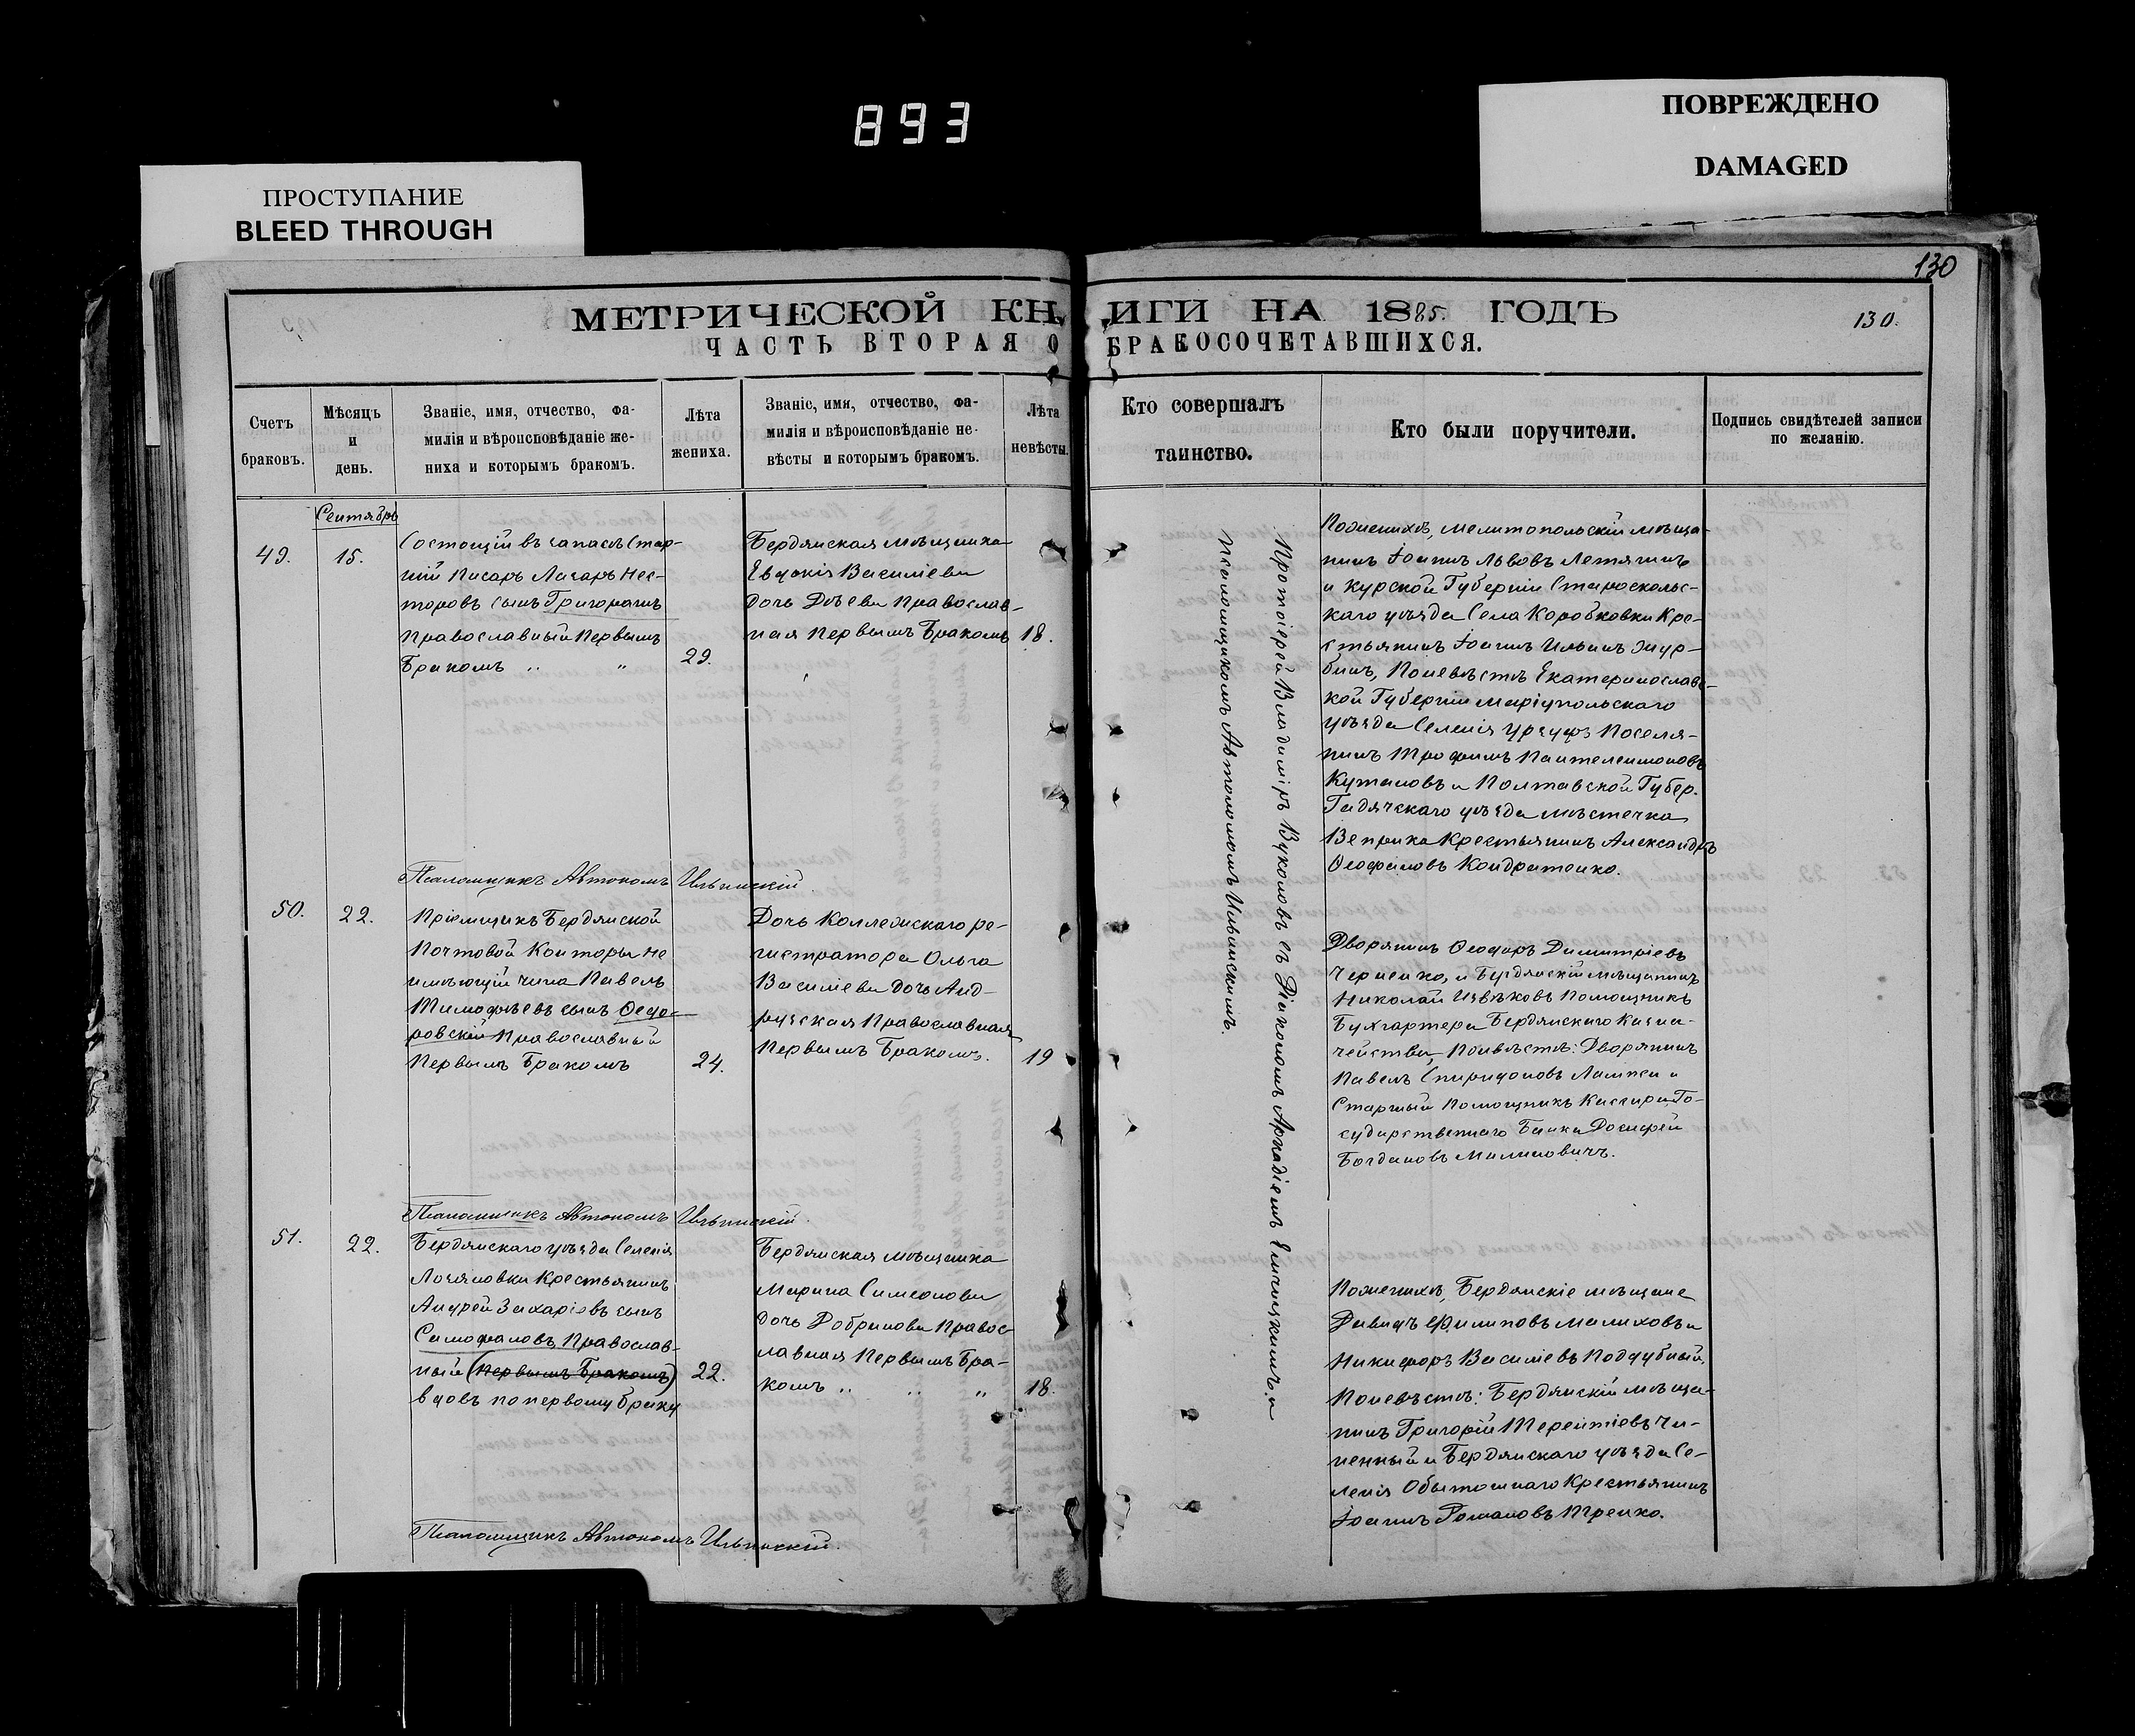 893
ПОВРЕЖДЕНО
DAMAGED
ПРОСТУПАНИЕ
BLEED THROUGH
130
МЕТРИЧЕСКОЙ КНИГИ НА 1885. ГОДЪ
130.
ЧАСТЬ ВТОРАЯ О БРАКОСОЧЕТАВШИХСЯ.
Счетъ
браковъ.
Мѣсяцъ
и
день.
Званіе, имя, отчество, фа-
милія и вѣроисповѣданіе же-
ниха и которымъ бракомъ.
Лѣта
жениха.
Званіе, имя, отчество, фа-
милія и вѣроисповѣданіе не-
вѣсты и которымъ бракомъ.
Лѣта
невѣсты.
Кто совершалъ
таинство.
Кто были поручители.
Подпись свидѣтелей записи
по желанію.
Сентябрь
49.
15.
Состоящій въ запасѣ Стар-
шій Писарь Лазарь Нес-
торовъ сынъ Григорашъ
Православный Первымъ
Бракомъ „ „
29.
Бердянская мѣщанка
Евдокія Василіева
дочь Дѣева Православ-
ная Первымъ Бракомъ
18.
Протоіерей Владиміръ Вуколовъ съ Діакономъ Аркадіемъ и
Псаломщикомъ Автономомъ Ильинскимъ.
По женихѣ, мелитопольскій мѣща-
нинъ Іоаннъ Львовъ Летягинъ
и Курской Губерніи Старооскольс-
каго уѣзда Села Коробковки Кре-
стьянинъ Іоаннъ Ильинъ Жур-
бинъ, По невѣстѣ Екатеринославс-
кой Губерніи Маріупольскаго
уѣзда Селенія Урзуфъ Поселя-
нинъ Трофимъ Пантелеимоновъ
Кутановъ и Полтавской Губер.
Гадячскаго уѣзда мѣстечка
Веприка Крестьянинъ Александръ
Ѳеофиловъ Кондратенко.
Псаломщикъ Автономъ Ильинскій.
50.
22.
Пріемщикъ Бердянской
Почтовой Конторы не
имѣющій чина Павелъ
Тимофѣевъ сынъ Ѳедо-
ровскій Православный
Первымъ Бракомъ
24.
Дочь Коллежскаго ре-
гистратора Ольга
Василіева дочь Анд-
рузская Православная
Первымъ Бракомъ.
19
Дворянинъ Ѳеодоръ Димитріевъ
Черненко, и Бердянскій мѣщанинъ
Николай Извѣковъ Помощникъ
Бухгартера Бердянскаго Казна-
чейства, По невѣстѣ: Дворянинъ
Павелъ Спиридоновъ Лампси и
Старшый Помощникъ Кассира Го-
сударственнаго Банка Досифей
Богдановъ Милиновичъ.
Псаломщикъ Автономъ Ильинскій.
51.
22.
Бердянскаго уѣзда Селенія
Лозяновки Крестьянинъ
Андрей Захаріевъ сынъ
Самофаловъ Православ-
ный (Первымъ Бракомъ)
вдовъ по первому браку
22.
Бердянская мѣщанка
Марина Симеонова
дочь Добринова Правос-
лавная Первымъ Бра-
комъ „ „ „
18.
По женихѣ, Бердянскіе мѣщане
Давидъ Филиповъ Малиховъ и
Никифоръ Василіевъ Поддубный,
По невѣстѣ: Бердянскій мѣща-
нинъ Григорій Терентіевъ Чи-
ненный и Бердянскаго уѣзда Се-
ленія Обыточнаго Крестьянинъ
Іоаннъ Романовъ Ющенко.
Псаломщикъ Автономъ Ильинскій.